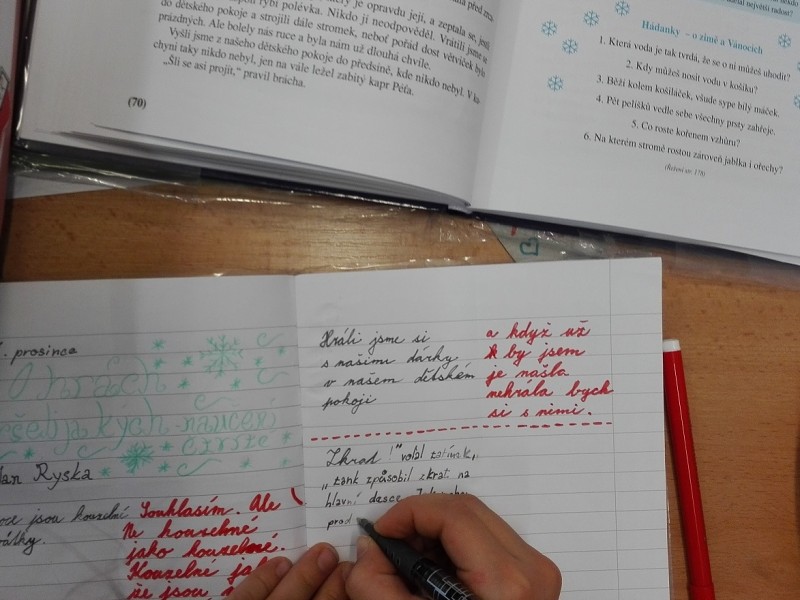 který je opravdu její, a zeptala se, jestli
rybí polévka. Nikdo jí neodpověděl. Vrátili jsme se
do dětského pokoje a strojili dále stromek, neboť pořád dost větviček bylo
prázdných. Ale bolely nás ruce a byla nám už dlouhá chvíle.
Vyšli jsme z našeho dětského pokoje do předsíně, kde nikdo nebyl. V ku-
chyni taky nikdo nebyl, jen na vále ležel zabitý kapr Péťa.
„Šli se asi projít,“ pravil brácha.
(70)
největší radost?
Hádanky – o zimě a Vánocích
1. Která voda je tak tvrdá, že se o ni můžeš uhodit?
2. Kdy můžeš nosit vodu v košíku?
3. Běží kolem košiláček, všude sype bílý máček.
4. Pět pelíšků vedle sebe všechny prsty zahřeje.
5. Co roste kořenem vzhůru?
6. Na kterém stromě rostou zároveň jablka i ořechy?
(Řešení str. 178)
. prosince
O hrách
všelijakých naučení
čerste
Jan Ryska
jsou kouzelné
Souhlasím. Ale
Ne kouzelné
jako kouzelné.
Kouzelné jak
že jsou
Hráli jsme si
s našimi dárky
v našem dětském
pokoji
a když už
k by jsem
je našla
nehrála bych
si s nimi.
Zkrad !" volal tatínek,
„tank způsobil zkrat na
hlavní desce.
prod